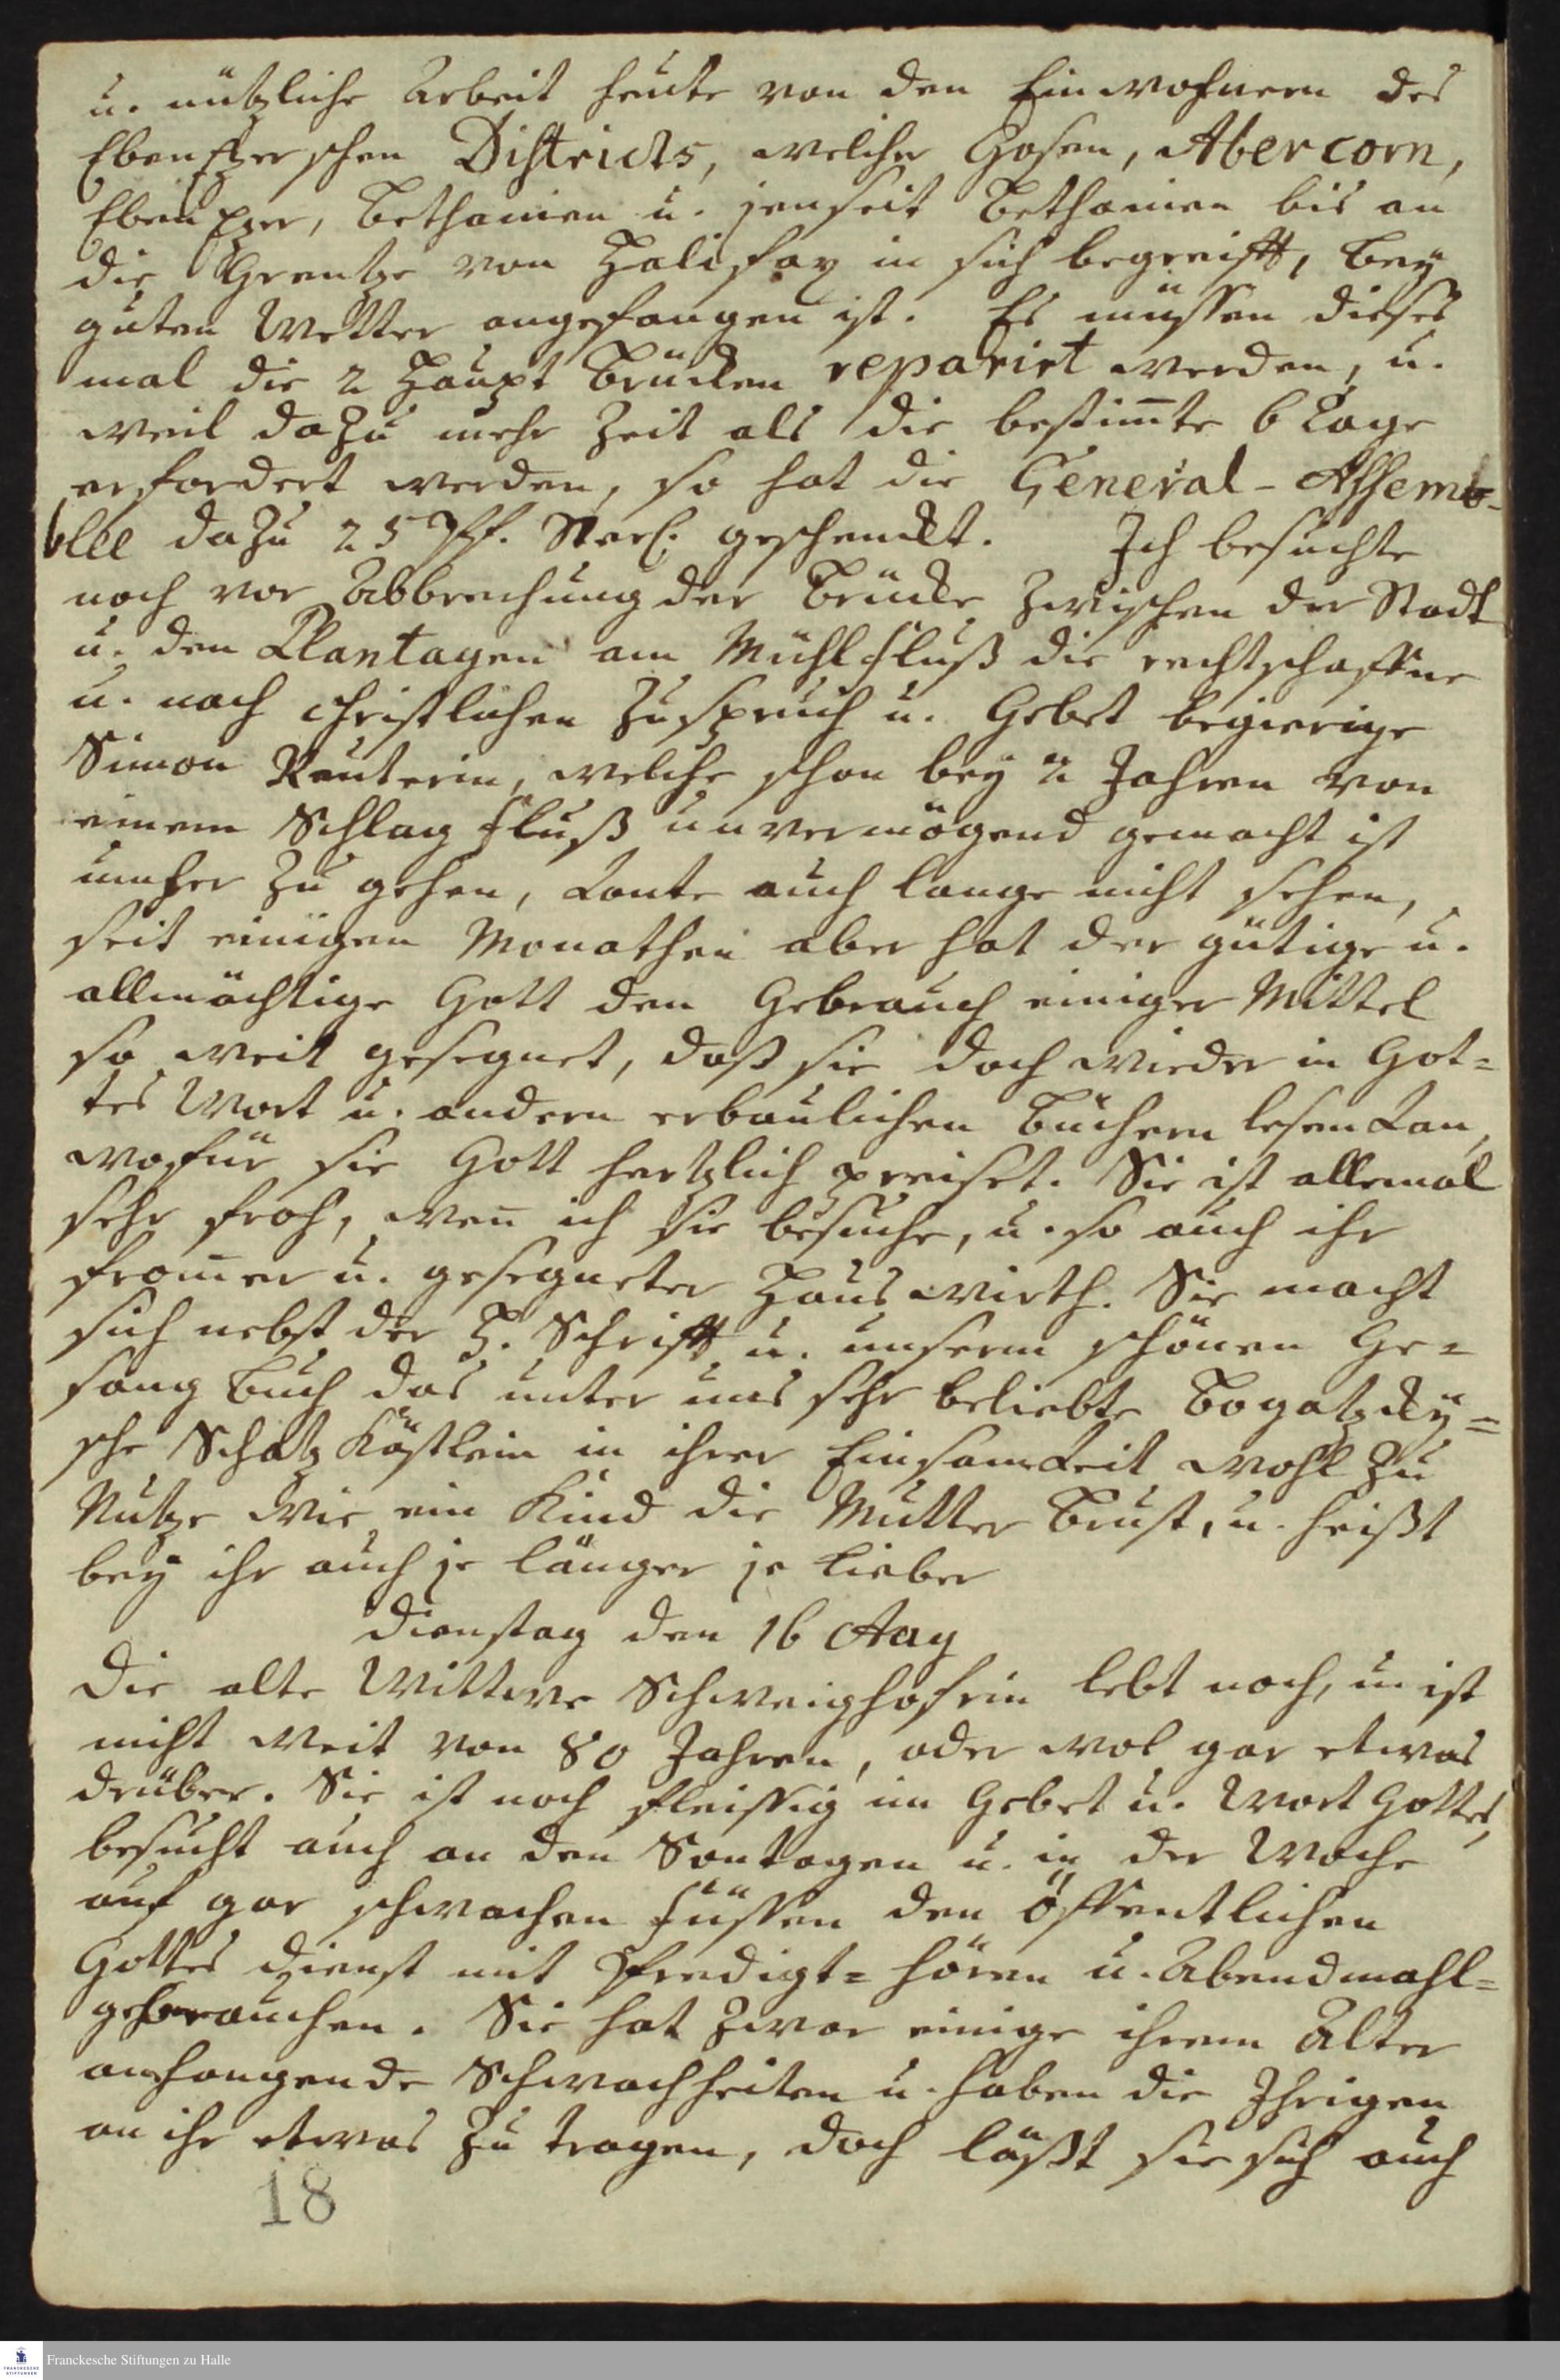 u. nützliche Arbeit heute von den Einwohnern des
Ebenezerschen Districts, welcher Gosen, Abercorn,
Ebenezer, Bethanien u. jenseit Bethanien bis an
die Grentze von Halifax in sich begreifft, bey
guten Wetter angefangen ist. Es müssen dieses
mal die 2 Haupt Brücken reparirt werden, u.
weil dazu mehr Zeit als die bestim̅te 6 Tage
erfordert werden, so hat die General-Assem-
blee dazu 25 Pf. Sterl. geschenckt. Ich besuchte
noch vor Abbrechung der Brücke zwischen der Stadt
u. den Plantagen am Mühlfluß die rechtschaffne
u. nach christlichen Zuspruch u. Gebet begierige
Simon Reuterin, welche schon bey 2 Jahren von
einem Schlag Fluß unvermögend gemacht ist
umher zu gehen, konte auch lange nicht sehen,
seit einigen Monathen aber hat der gütige u.
allmächtige Gott den Gebrauch einiger Mittel
so weit gesegnet, daß sie doch wieder in Got=
tes Wort u. andern erbaulichen Büchern lesen kan,
wofür sie Gott hertzlich preiset. Sie ist allemal
sehr froh, wen̅ ich sie besuche, u. so auch ihr
from̅er u. gesegneter Hauswirth. Sie macht
sich nebst der H. Schrifft u. unserm schönen Ge=
sang Buch das unter uns sehr beliebte Bogatzky=
sche Schatz Kästlein in ihrer Einsamkeit wohl zu
Nutze wie ein Kind die Mutter Brust, u. heißt
bey ihr auch je länger je lieber
Dienstag den 16 Aug
Die alte Wittwe Schweighoferin lebt noch, u. ist
nicht weit von 80 Jahren, oder wol gar etwas
drüber. Sie ist noch fleissig im Gebet u. Wort Gottes,
besucht auch an den Sontagen u. in der Woche
auf gar schwachen Füssen den öffentlichen
Gottes Dienst mit Predigt= hören u. Abendmahl=
gebrauchen. Sie hat zwar einige ihrem Alter
anhangende Schwachheiten u. haben die Ihrigen
an ihr etwas zu tragen, doch läßt sie sich auch
18
Franckesche Stiftungen zu Halle